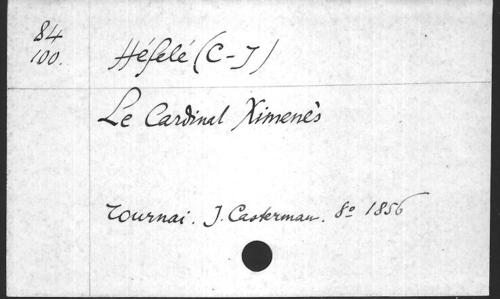 84
100.
Héfelé (C-J)
Le Cardinal Ximenès
Tournai. J. Casterman. 8º 1856